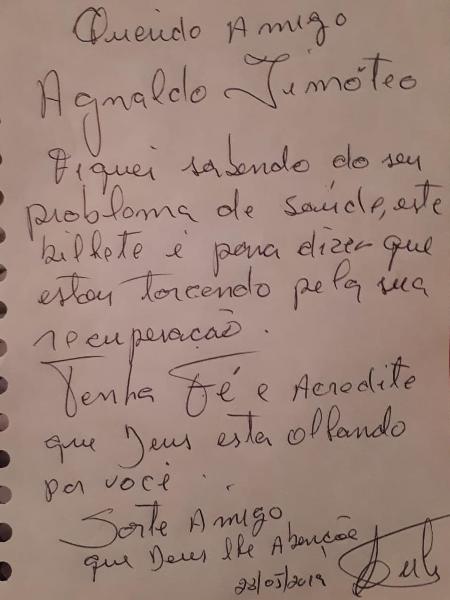 Querido Amigo
Agnaldo Timóteo
Fiquei sabendo do seu
probloma de saúde, este
bilhete é para dizer que
estou torcendo pela sua
recuperação.
Tenha Fé e Acredite
que Deus esta olhando
por você..
Sorte Amigo
que Deus lhe Abençõe
23/05/2019
Lula